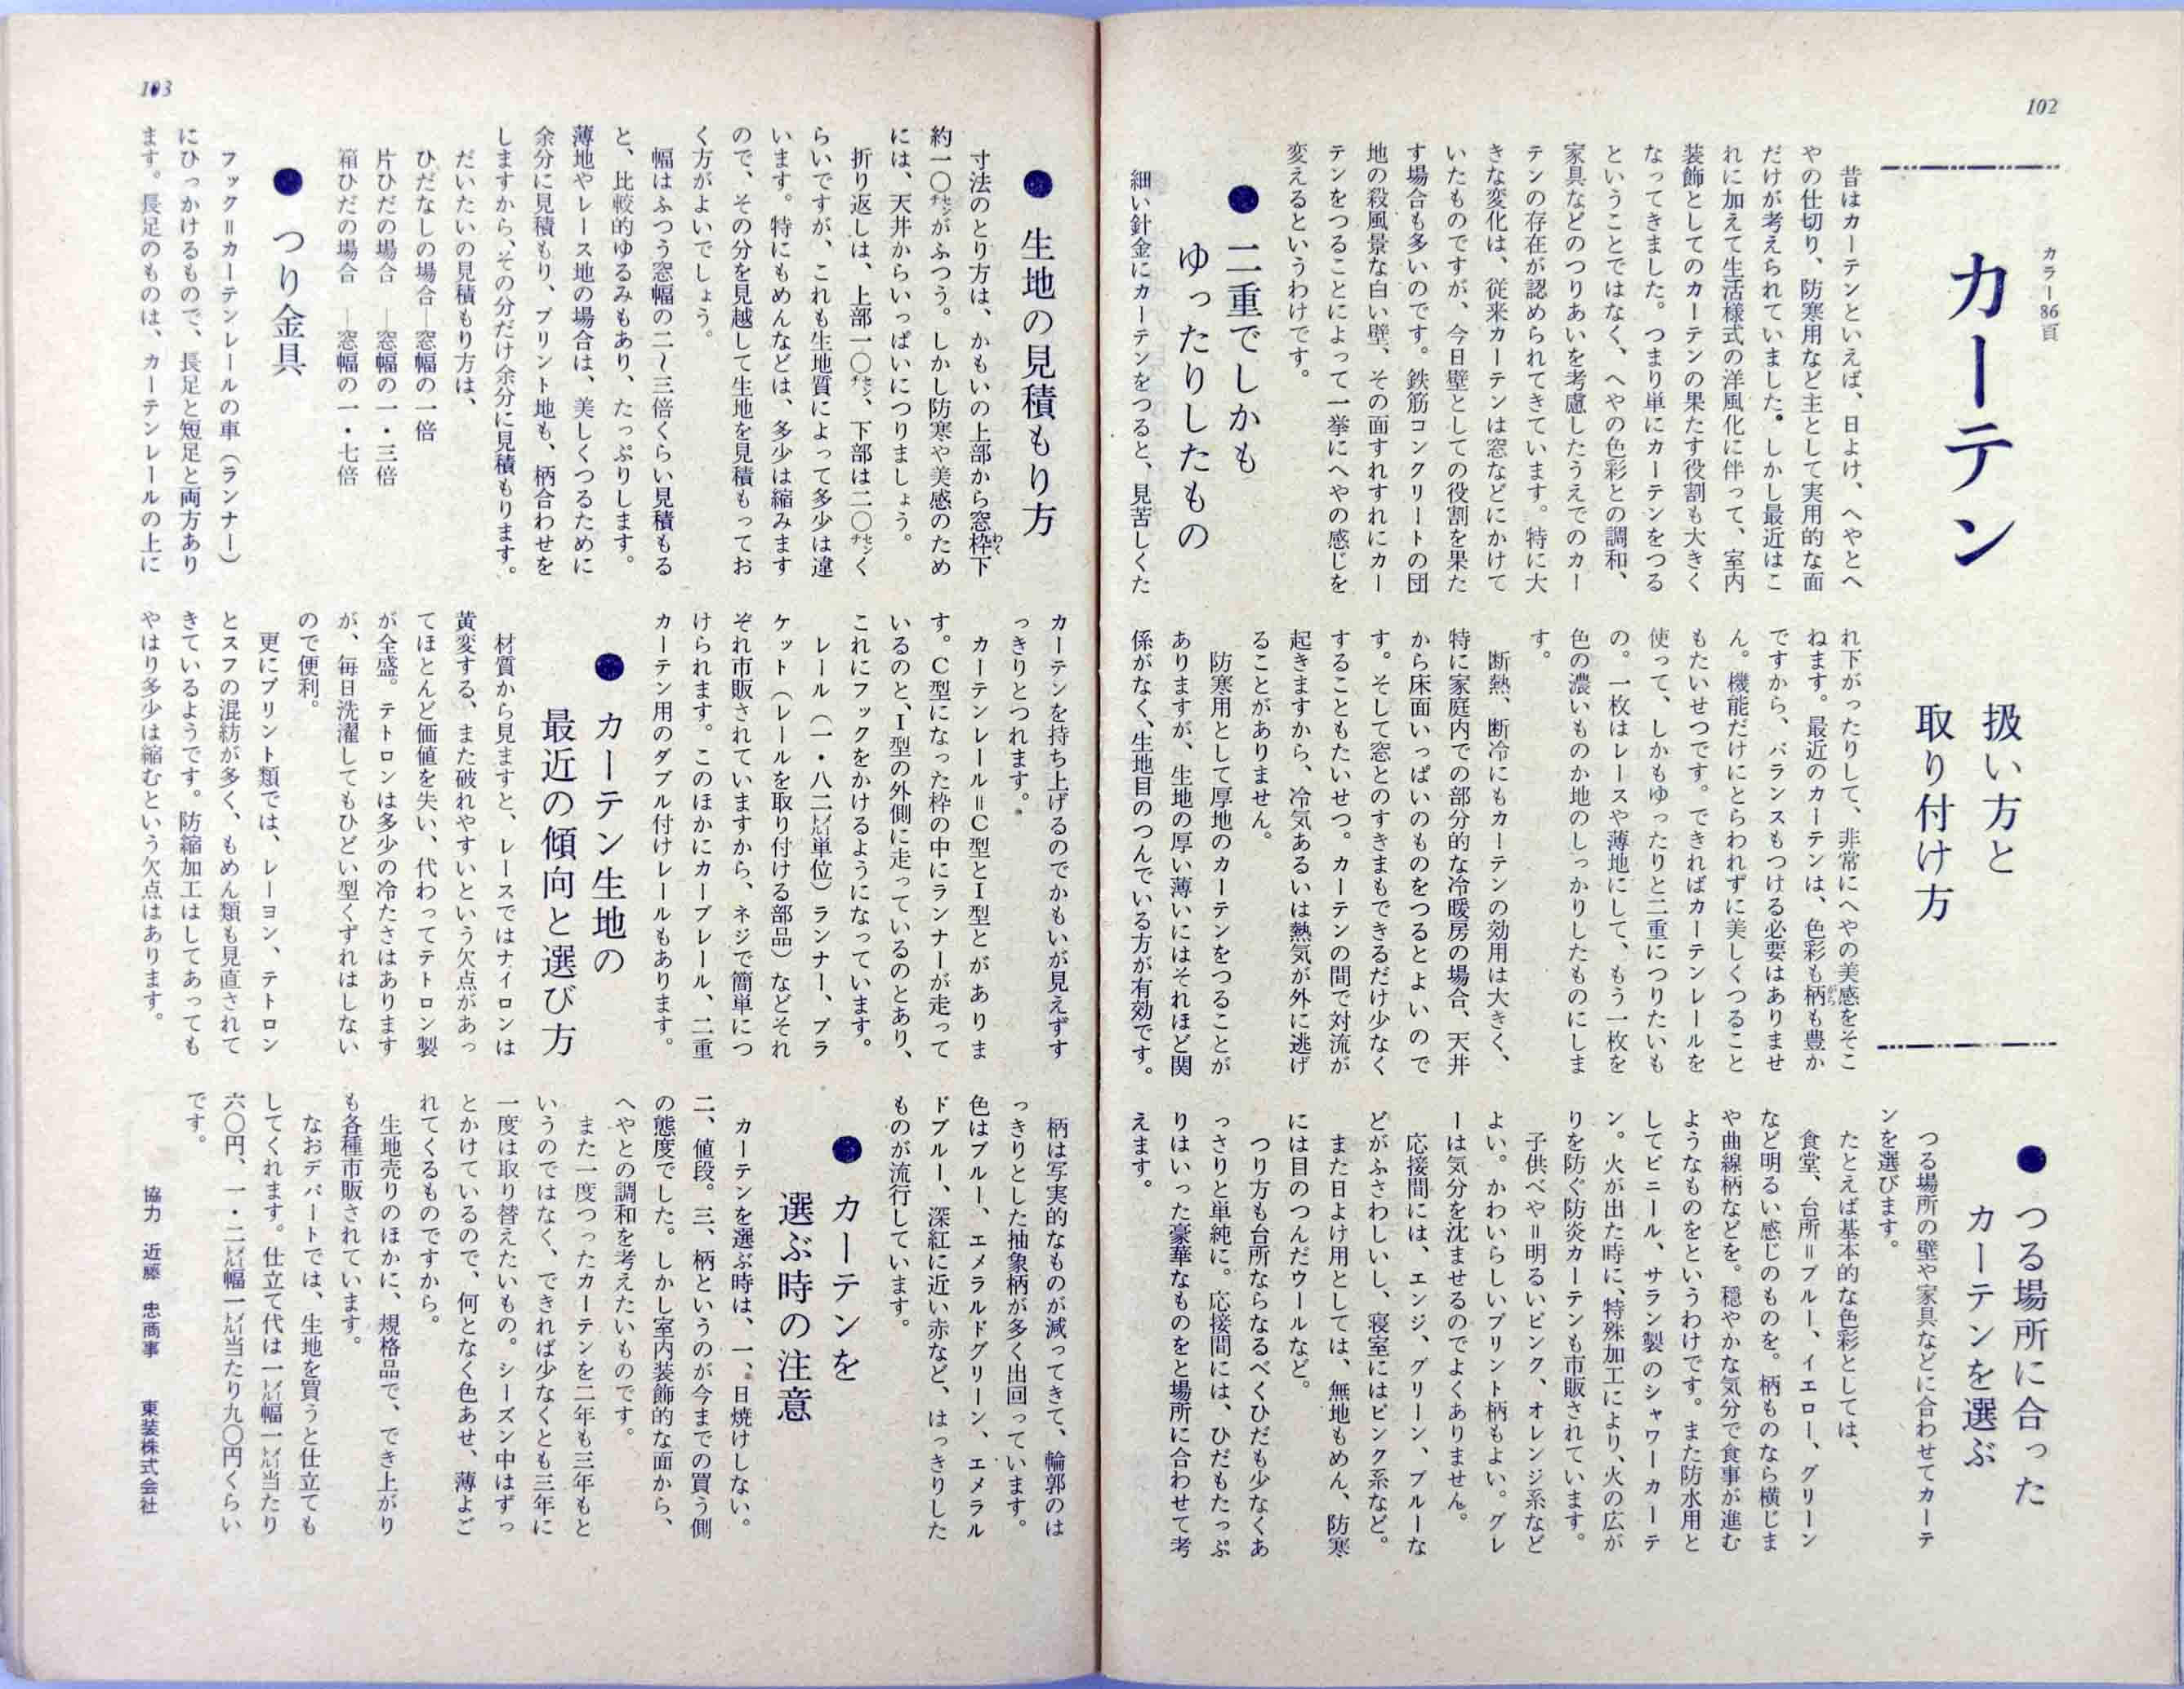 102
カラー86頁
カーテン
扱い方と
取り付け方
昔はカーテンといえば、日よけ、へやとへ
やの仕切り、防寒用など主として実用的な面
だけが考えられていました。しかし最近はこ
れに加えて生活様式の洋風化に伴って、室内
装飾としてのカーテンの果たす役割も大きく
なってきました。つまり単にカーテンをつる
ということではなく、へやの色彩との調和、
家具などのつりあいを考慮したうえでのカー
テンの存在が認められてきています。特に大
きな変化は、従来カーテンは窓などにかけて
いたものですが、今日壁としての役割を果た
す場合も多いのです。鉄筋コンクリートの団
地の殺風景な白い壁、その面すれすれにカー
テンをつることによって一挙にへやの感じを
変えるというわけです。
● 二重でしかも
ゆったりしたもの
細い針金にカーテンをつると、見苦しくた
れ下がったりして、非常にへやの美感をそこ
ねます。最近のカーテンは、色彩も柄も豊か
ですから、バランスもつける必要はありませ
ん。機能だけにとらわれずに美しくつること
もたいせつです。できればカーテンレールを
使って、しかもゆったりと二重につりたいも
の。一枚はレースや薄地にして、もう一枚を
色の濃いものか地のしっかりしたものにしま
す。
断熱、断冷にもカーテンの効用は大きく、
特に家庭内での部分的な冷暖房の場合、天井
から床面いっぱいのものをつるとよいので
す。そして窓とのすきまもできるだけ少なく
することもたいせつ。カーテンの間で対流が
起きますから、冷気あるいは熱気が外に逃げ
ることがありません。
防寒用として厚地のカーテンをつることが
ありますが、生地の厚い薄いにはそれほど関
係がなく、生地目のつんでいる方が有効です。
● つる場所に合った
カーテンを選ぶ
つる場所の壁や家具などに合わせてカーテ
ンを選びます。
たとえば基本的な色彩としては、
食堂、台所＝ブルー、イエロー、グリーン
など明るい感じのものを。柄ものなら横じま
や曲線柄などを。穏やかな気分で食事が進む
ようなものをというわけです。また防水用と
してビニール、サラン製のシャワーカーテ
ン。火が出た時に、特殊加工により、火の広が
りを防ぐ防炎カーテンも市販されています。
子供べや＝明るいピンク、オレンジ系など
よい。かわいらしいプリント柄もよい。グレ
ーは気分を沈ませるのでよくありません。
応接間には、エンジ、グリーン、ブルーな
どがふさわしいし、寝室にはピンク系など。
また日よけ用としては、無地もめん、防寒
には目のつんだウールなど。
つり方も台所ならなるべくひだも少なくあ
っさりと単純に。応接間には、ひだもたっぷ
りはいった豪華なものをと場所に合わせて考
えます。
103
● 生地の見積もり方
寸法のとり方は、かもいの上部から窓枠下
約一〇センチがふつう。しかし防寒や美感のため
には、天井からいっぱいにつりましょう。
折り返しは、上部一〇センチ、下部は二〇センチく
らいですが、これも生地質によって多少は違
います。特にもめんなどは、多少は縮みます
ので、その分を見越して生地を見積もってお
く方がよいでしょう。
幅はふつう窓幅の二〜三倍くらい見積もる
と、比較的ゆるみもあり、たっぷりします。
薄地やレース地の場合は、美しくつるために
余分に見積もり、プリント地も、柄合わせを
しますから、その分だけ余分に見積もります。
だいたいの見積もり方は、
ひだなしの場合―窓幅の一倍
片ひだの場合　―窓幅の一・三倍
箱ひだの場合　―窓幅の一・七倍
● つり金具
フック＝カーテンレールの車（ランナー）
にひっかけるもので、長足と短足と両方あり
ます。長足のものは、カーテンレールの上に
カーテンを持ち上げるのでかもいが見えずす
っきりとつれます。
カーテンレール＝C型とI型とがありま
す。C型になった枠の中にランナーが走って
いるのと、I型の外側に走っているのとあり、
これにフックをかけるようになっています。
レール（一・八二メートル単位）ランナー、ブラ
ケット（レールを取り付ける部品）などそれ
ぞれ市販されていますから、ネジで簡単につ
けられます。このほかにカーブレール、二重
カーテン用のダブル付けレールもあります。
● カーテン生地の
最近の傾向と選び方
材質から見ますと、レースではナイロンは
黄変する、また破れやすいという欠点があっ
てほとんど価値を失い、代わってテトロン製
が全盛。テトロンは多少の冷たさはあります
が、毎日洗濯してもひどい型くずれはしない
ので便利。
更にプリント類では、レーヨン、テトロン
とスフの混紡が多く、もめん類も見直されて
きているようです。防縮加工はしてあっても
やはり多少は縮むという欠点はあります。
柄は写実的なものが減ってきて、輪郭のは
っきりとした抽象柄が多く出回っています。
色はブルー、エメラルドグリーン、エメラル
ドブルー、深紅に近い赤など、はっきりした
ものが流行しています。
● カーテンを
選ぶ時の注意
カーテンを選ぶ時は、一、日焼けしない。
二、値段。三、柄というのが今までの買う側
の態度でした。しかし室内装飾的な面から、
へやとの調和を考えたいものです。
また一度つったカーテンを二年も三年もと
いうのではなく、できれば少なくとも三年に
一度は取り替えたいもの。シーズン中はずっ
とかけているので、何となく色あせ、薄よご
れてくるものですから。
生地売りのほかに、規格品で、でき上がり
も各種市販されています。
なおデパートでは、生地を買うと仕立ても
してくれます。仕立て代は一メートル幅一メートル当たり
六〇円、一・二メートル幅一メートル当たり九〇円くらい
です。
協力　近藤　忠商事　　東装株式会社